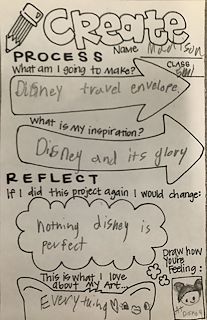 Create
Name Madison
PROCESS
CLASS
What am I going to make?
Disney travel envelope
What is my inspiration?
Disney and its glory
REFLECT
If I did this project again I would change:
nothing disney is
perfect
Draw how
You're
Feeling:
This is what I love
about My Art...
Everything